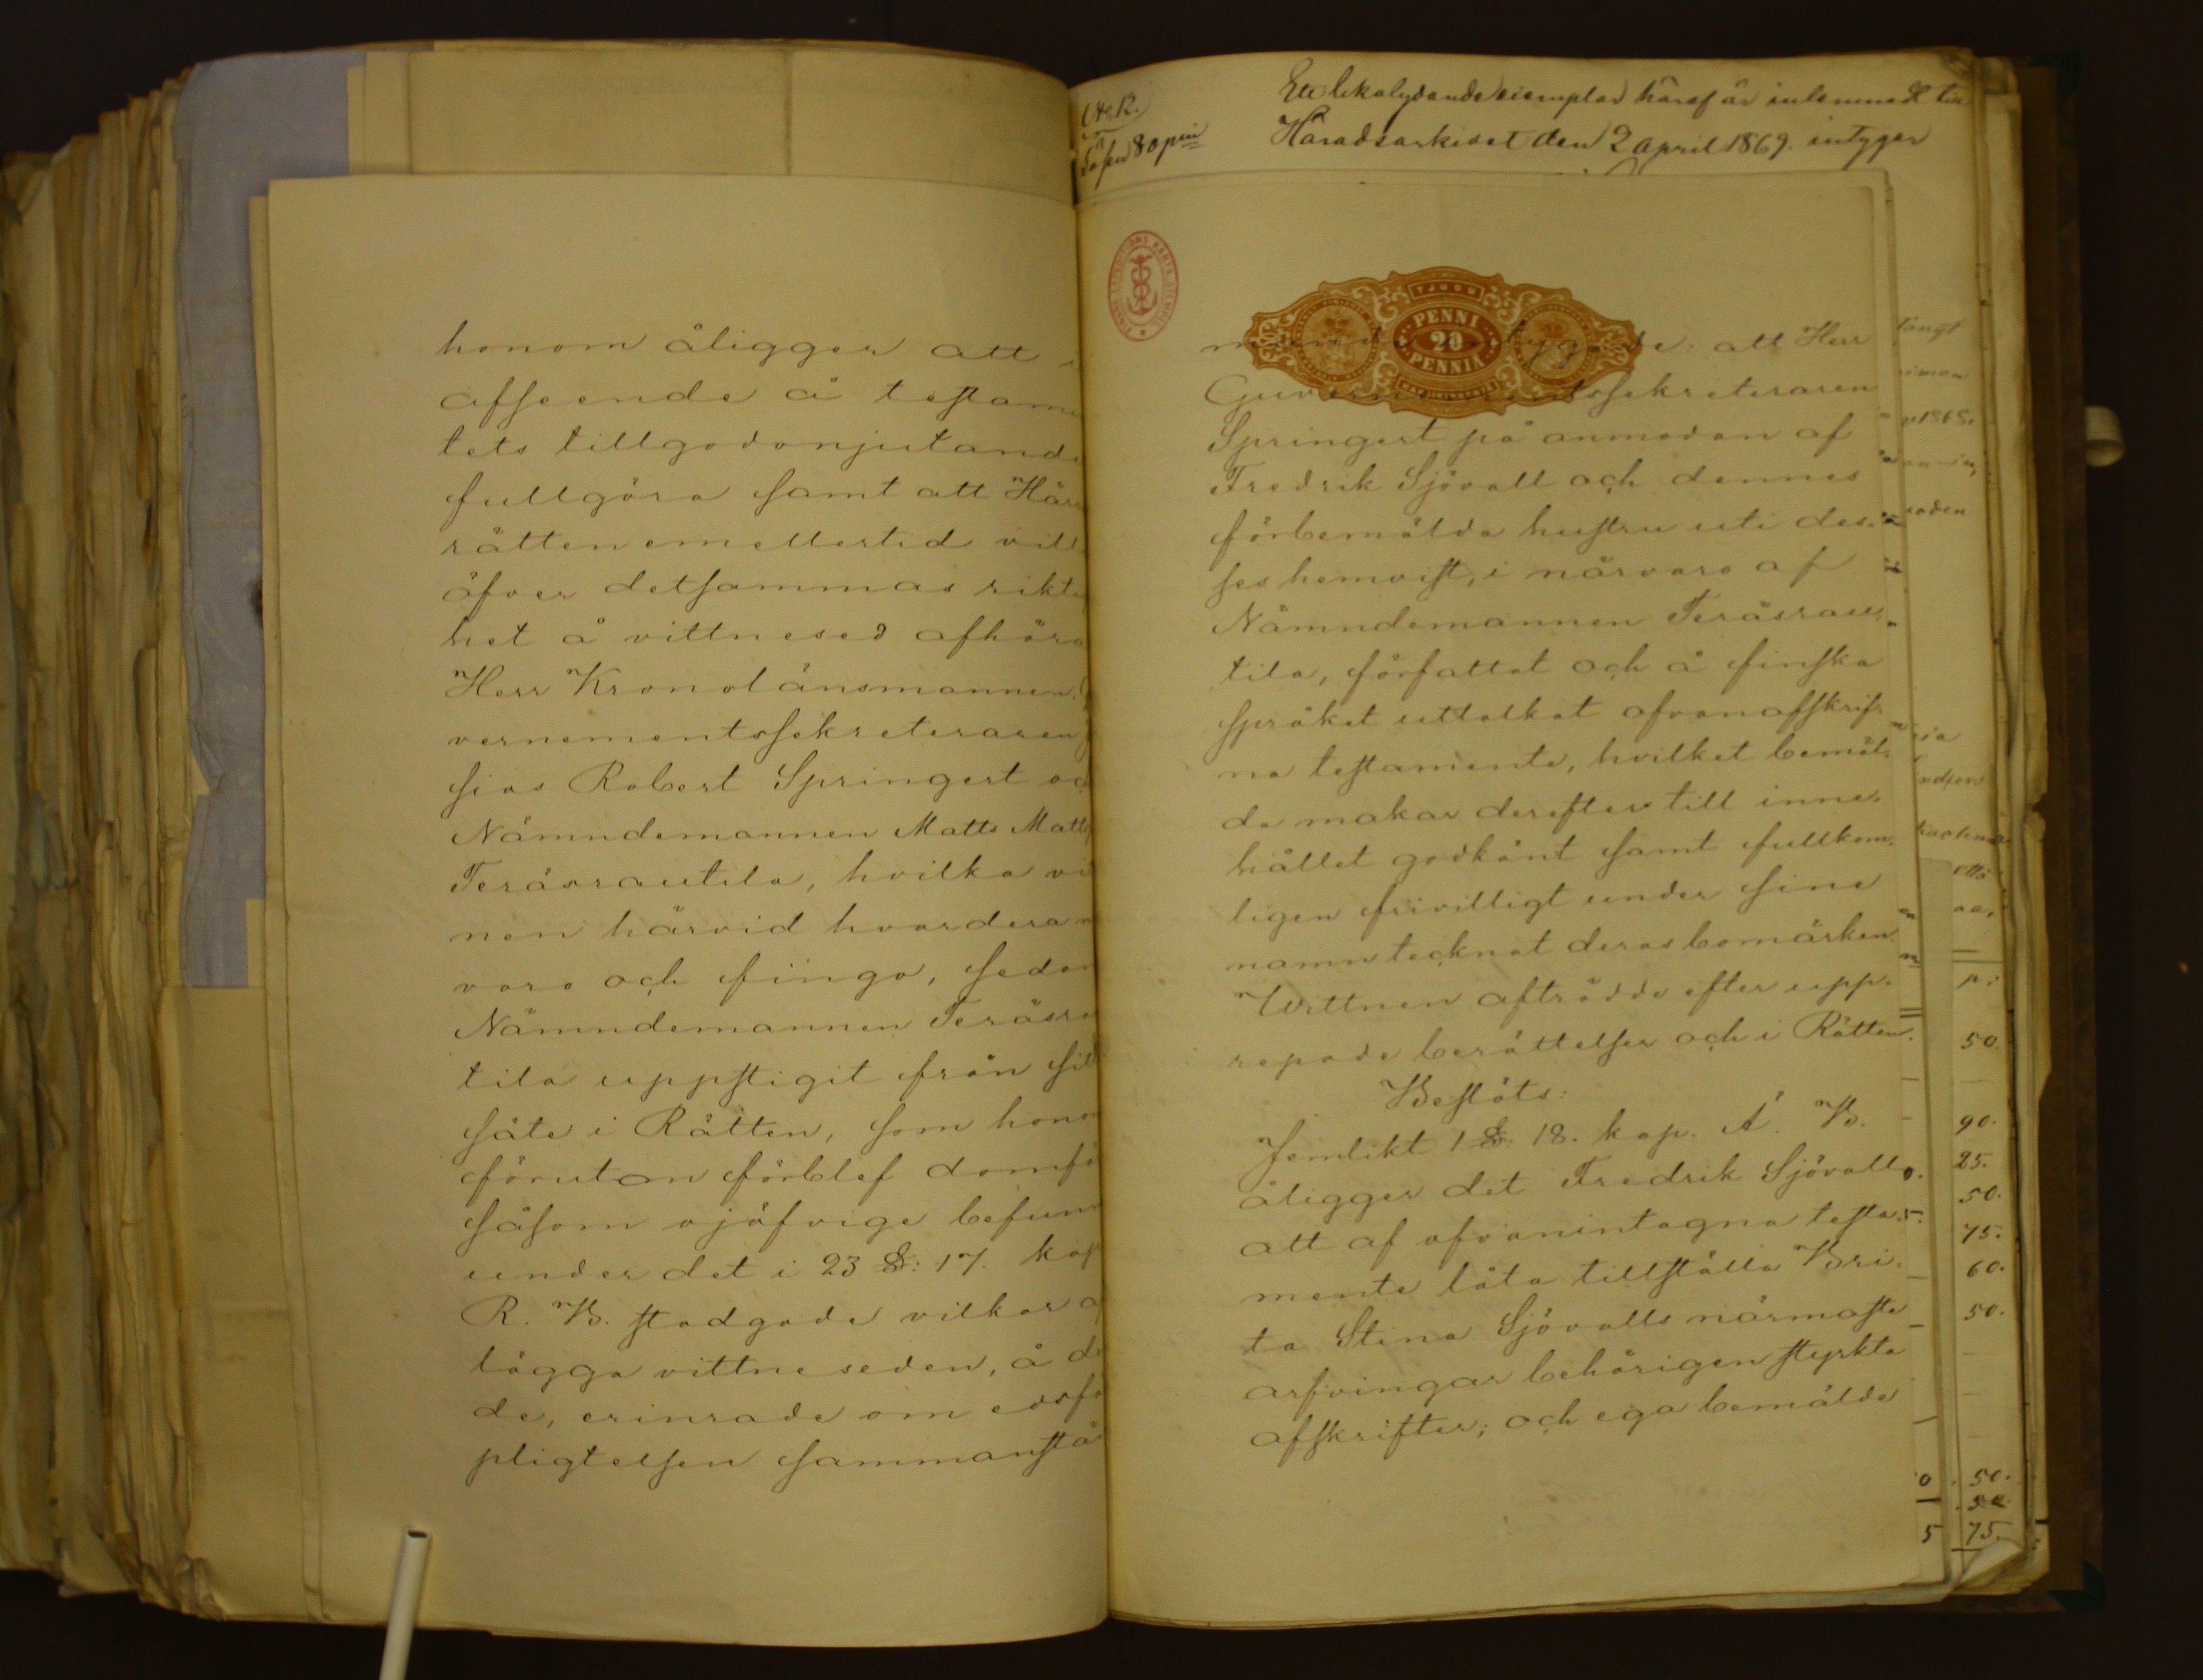 honom åligger att i
afseende å testamen
tets tillgodonjutande
fullgöra samt att Hära
rätten emellertid vill
öfver detsammas rikti
het å vittnesed afhöra
Herr Kronolänsmannen
vernementssekreteraren
sias Robert Springert och
Nämndemannen Matts Matts
Teräsrautila, hvilka vit
nen härvid hvardera n
varo och fingo, sedan
Nämndemannen Teräsra
tila uppstigit från sitt
säte i Rätten, som honom
förutan förblef domfö
såsom ojäfvige befunn
under det i 23 §: 17. kap
R. B. stadgade vilkor a
lägga vittneseden, å de
de, erinrade om edsfö
pligtelsen sammanstä
Ett likalydande exemplar häraf är inlemnadt till
Häradsarkivet den 2 April 1869. intygar
80 pni
TJUGU
PENNI
20
PENNIÄ
mande intygade: att Herr
Guvernementssekreteraren
Springert på anmodan af
Fredrik Sjövall och dennes
förbemälda hustru uti des-
ses hemvist, i närvaro af
Nämndemannen Teräsrau-
tila, författat och å finska
språket uttolkat ofvanafskrif-
na testamente, hvilket bemäl-
da makar derefter till inne-
hållet godkänt samt fullkom-
ligen frivilligt under sine
namn tecknat deras bomärken.
Wittnen afträdde efter upp-
repade berättelser och i Rätten.
Beslöts:
Jemlikt 1 §: 18. kap. Ä. B.
åligger det Fredrik Sjövall
att af ofvanintagna testa-
mente låta tillställa Bri-
ta Stina Sjövalls närmaste
arfvingar behörigen styrkta
afskrifter; och ega bemälde
1868.
p:
50.
90.
25.
50.
75.
60.
50.
50.
75.